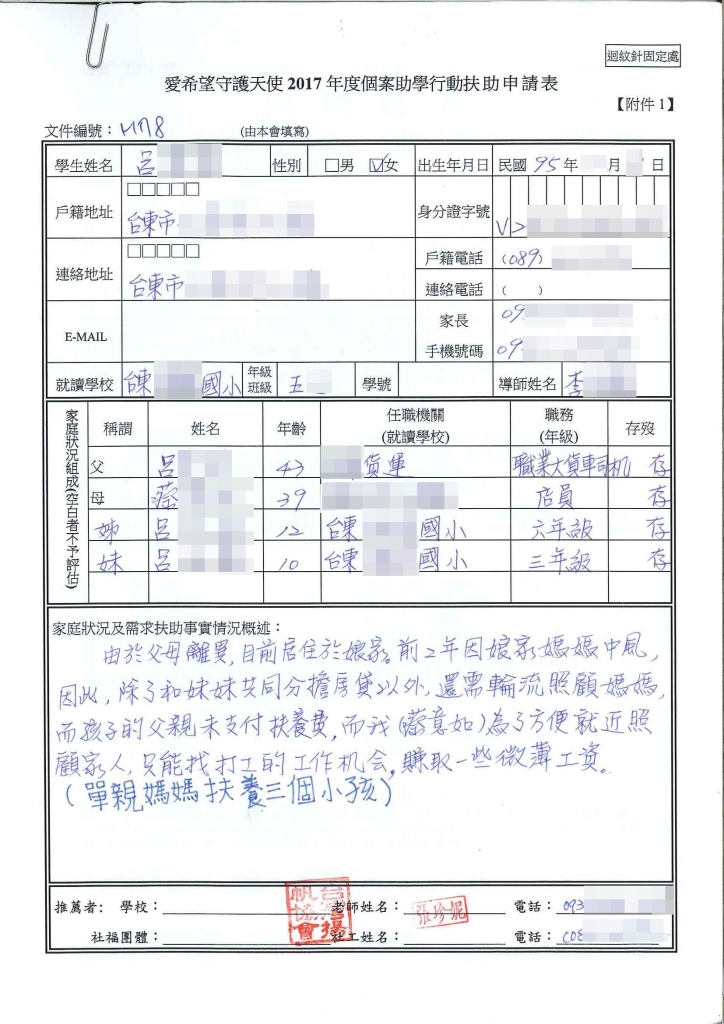 迴紋針固定處
愛希望守護天使 2017 年度個案助學行動扶助申請表
【附件 1】
文件編號：M78 (由本會填寫)
學生姓名 呂 性別 □男 ☑女 出生年月日 民國 95 年 月 日
戶籍地址 □□□□□ 台東市 身分證字號 V2
連絡地址 □□□□□ 台東市 戶籍電話 (089)
連絡電話 ( )
E-MAIL 家長手機號碼 09
09
就讀學校 台東 國小 年級班級 五 學號 導師姓名 李
家庭狀況組成(空白者不予評估)
稱謂 姓名 年齡 任職機關(就讀學校) 職務(年級) 存歿
父 呂 43 貨運 職業大貨車司机 存
母 39 店員 存
姊 呂 12 台東 國小 六年級 存
妹 呂 10 台東 國小 三年級 存
家庭狀況及需求扶助事實情況概述：
由於父母離異,目前居住於娘家。前2年因娘家媽媽中風,
因此,除了和妹妹共同分擔房貸以外,還需輪流照顧媽媽,
而孩子的父親未支付扶養費,而我(意如)為了方便就近照
顧家人,只能找打工的工作机会,賺取一些微薄工資。
(單親媽媽扶養三個小孩)
推薦者： 學校： 老師姓名： 張珍妮 電話： 093
社福團體： 社工姓名： 電話： (08
台灣揚帆協會